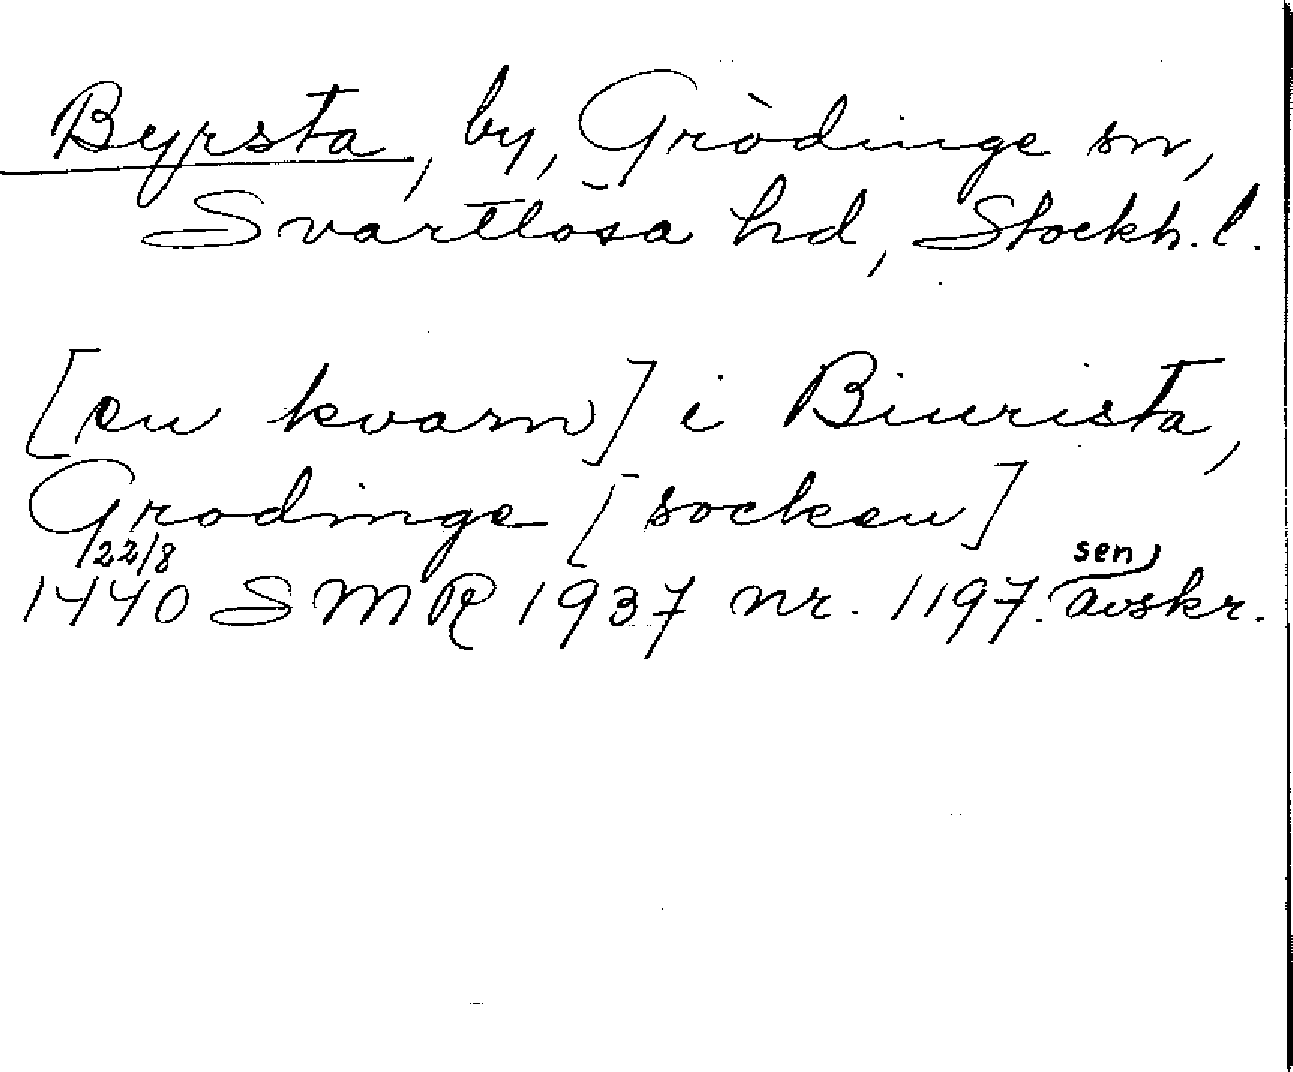 Byrsta, by, Grödinge sn,
Svartlösa hd, Stockh. l.
[en kvarn] i Biurista,
Grodinge [socken]
22/8 sen
1440 SMR 1937 nr. 1197. avskr.